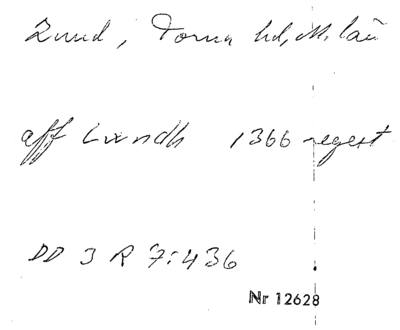 Lund, Torna hd, M. län
aff Lundh 1366 regest
DD 3 R 7:436
Nr 12628